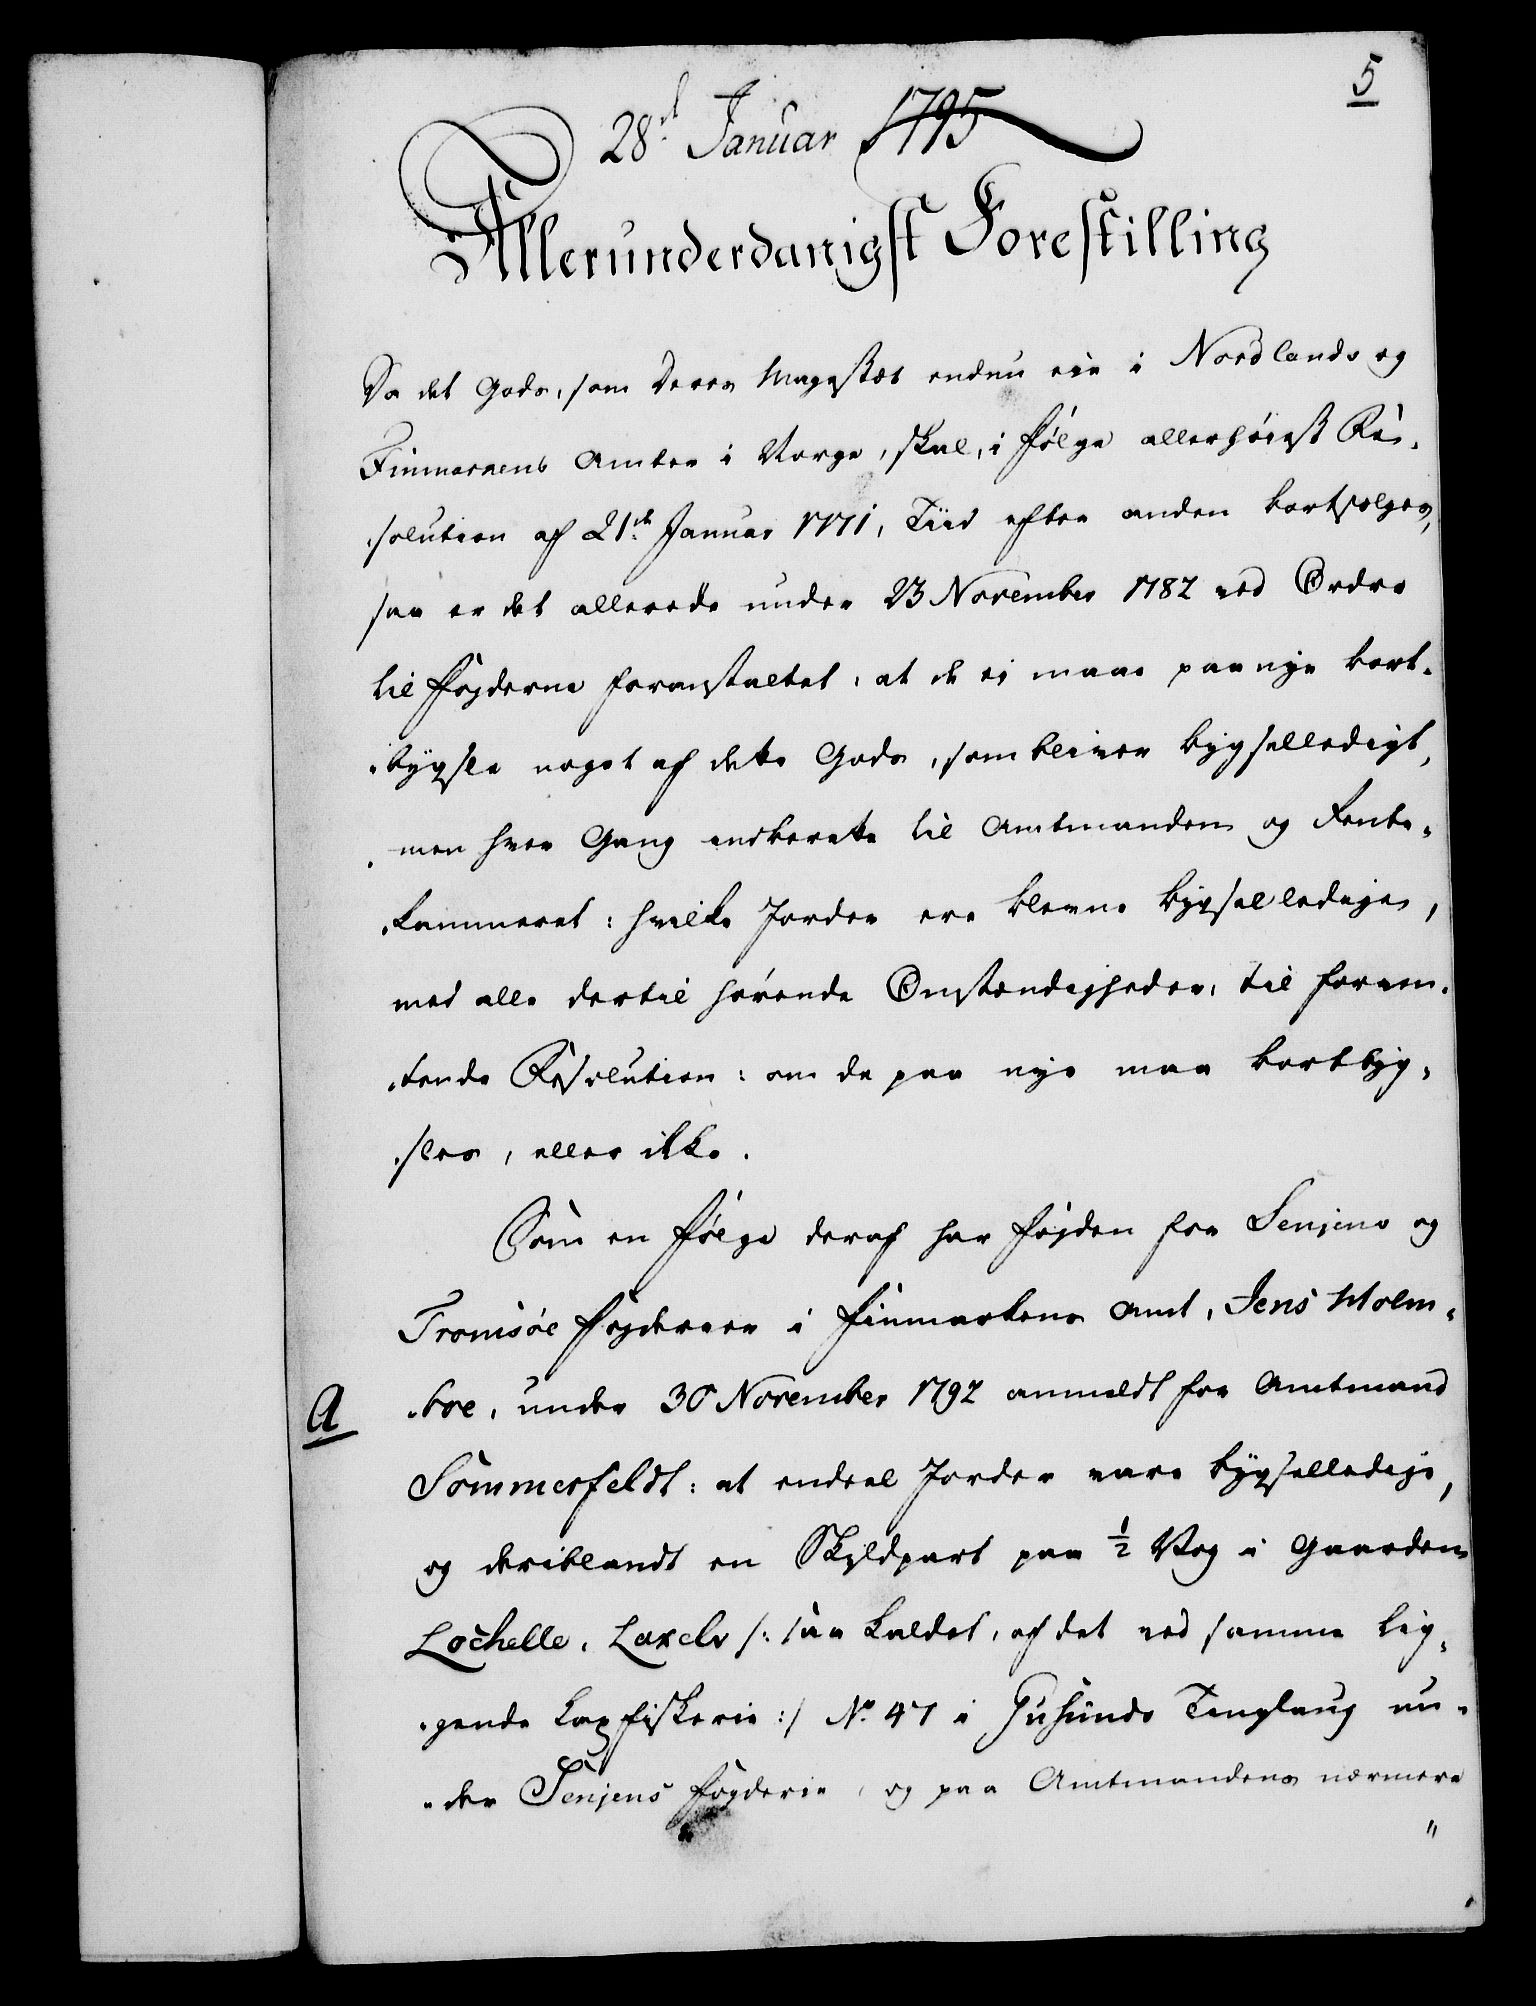 5
28.d Januar 1795
Allerunderdanigst Forestilling
Da det Gods, som Deres Majestæt endnu eier i Nordlands og
Finmarkens Amter i Norge, skal, i følge allerhøiest Re-
solution af 21.de Januar 1771, Tiid efter anden bortsælges,
saa er det allerede under 23 November 1782 ved Ordre
til Fogderne foranstaltet: at de ei maae paa nye bort-
bygsle noget af dette Gods, som bliver bygselledigt,
men hver Gang indberette til Amtmanden og Rente-
kammeret: hvilke Jorder ere blevne bygselledige,
med alle dertil hørende Omstændigheder, til forven-
tende Resolution: om de paa nye maa bortbyg-
sles, eller ikke.
Som en følge deraf har Fogden for Senjens og
Tromsøe Fogderier i Finmarkens Amt, Jens Holm-
boe, under 30 November 1792 anmeldt for Amtmand
A
Sommerfeldt: at endeel Jorder vare bygselledige,
og deriblandt en Skyldpart paa ½ Vog i Gaarden
Lochelle, Laxelv /: saa kaldet, af det ved samme lig-
gende Laxfiskerie :/ No. 47 i Gusunds Tinglaug un-
der Senjens Fogderie, og paa Amtmandens nærmere
"